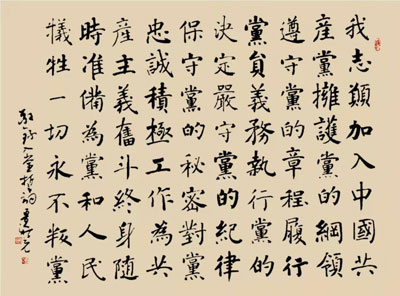 我志願加入中國共
產黨擁護黨的綱領
遵守黨的章程履行
黨員義務執行黨的
決定嚴守黨的紀律
保守黨的秘密對黨
忠誠積極工作為共
產主義奮斗終身隨
時准備為黨和人民
犧牲一切永不叛黨
入党誓詞